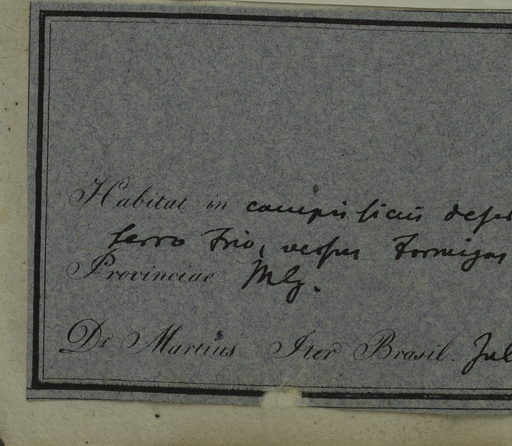 Habitat in campis siccis deser
Serro Frio, versus Formigas
Provinciae MG.
Dr Martius Iter Brasil. Jul